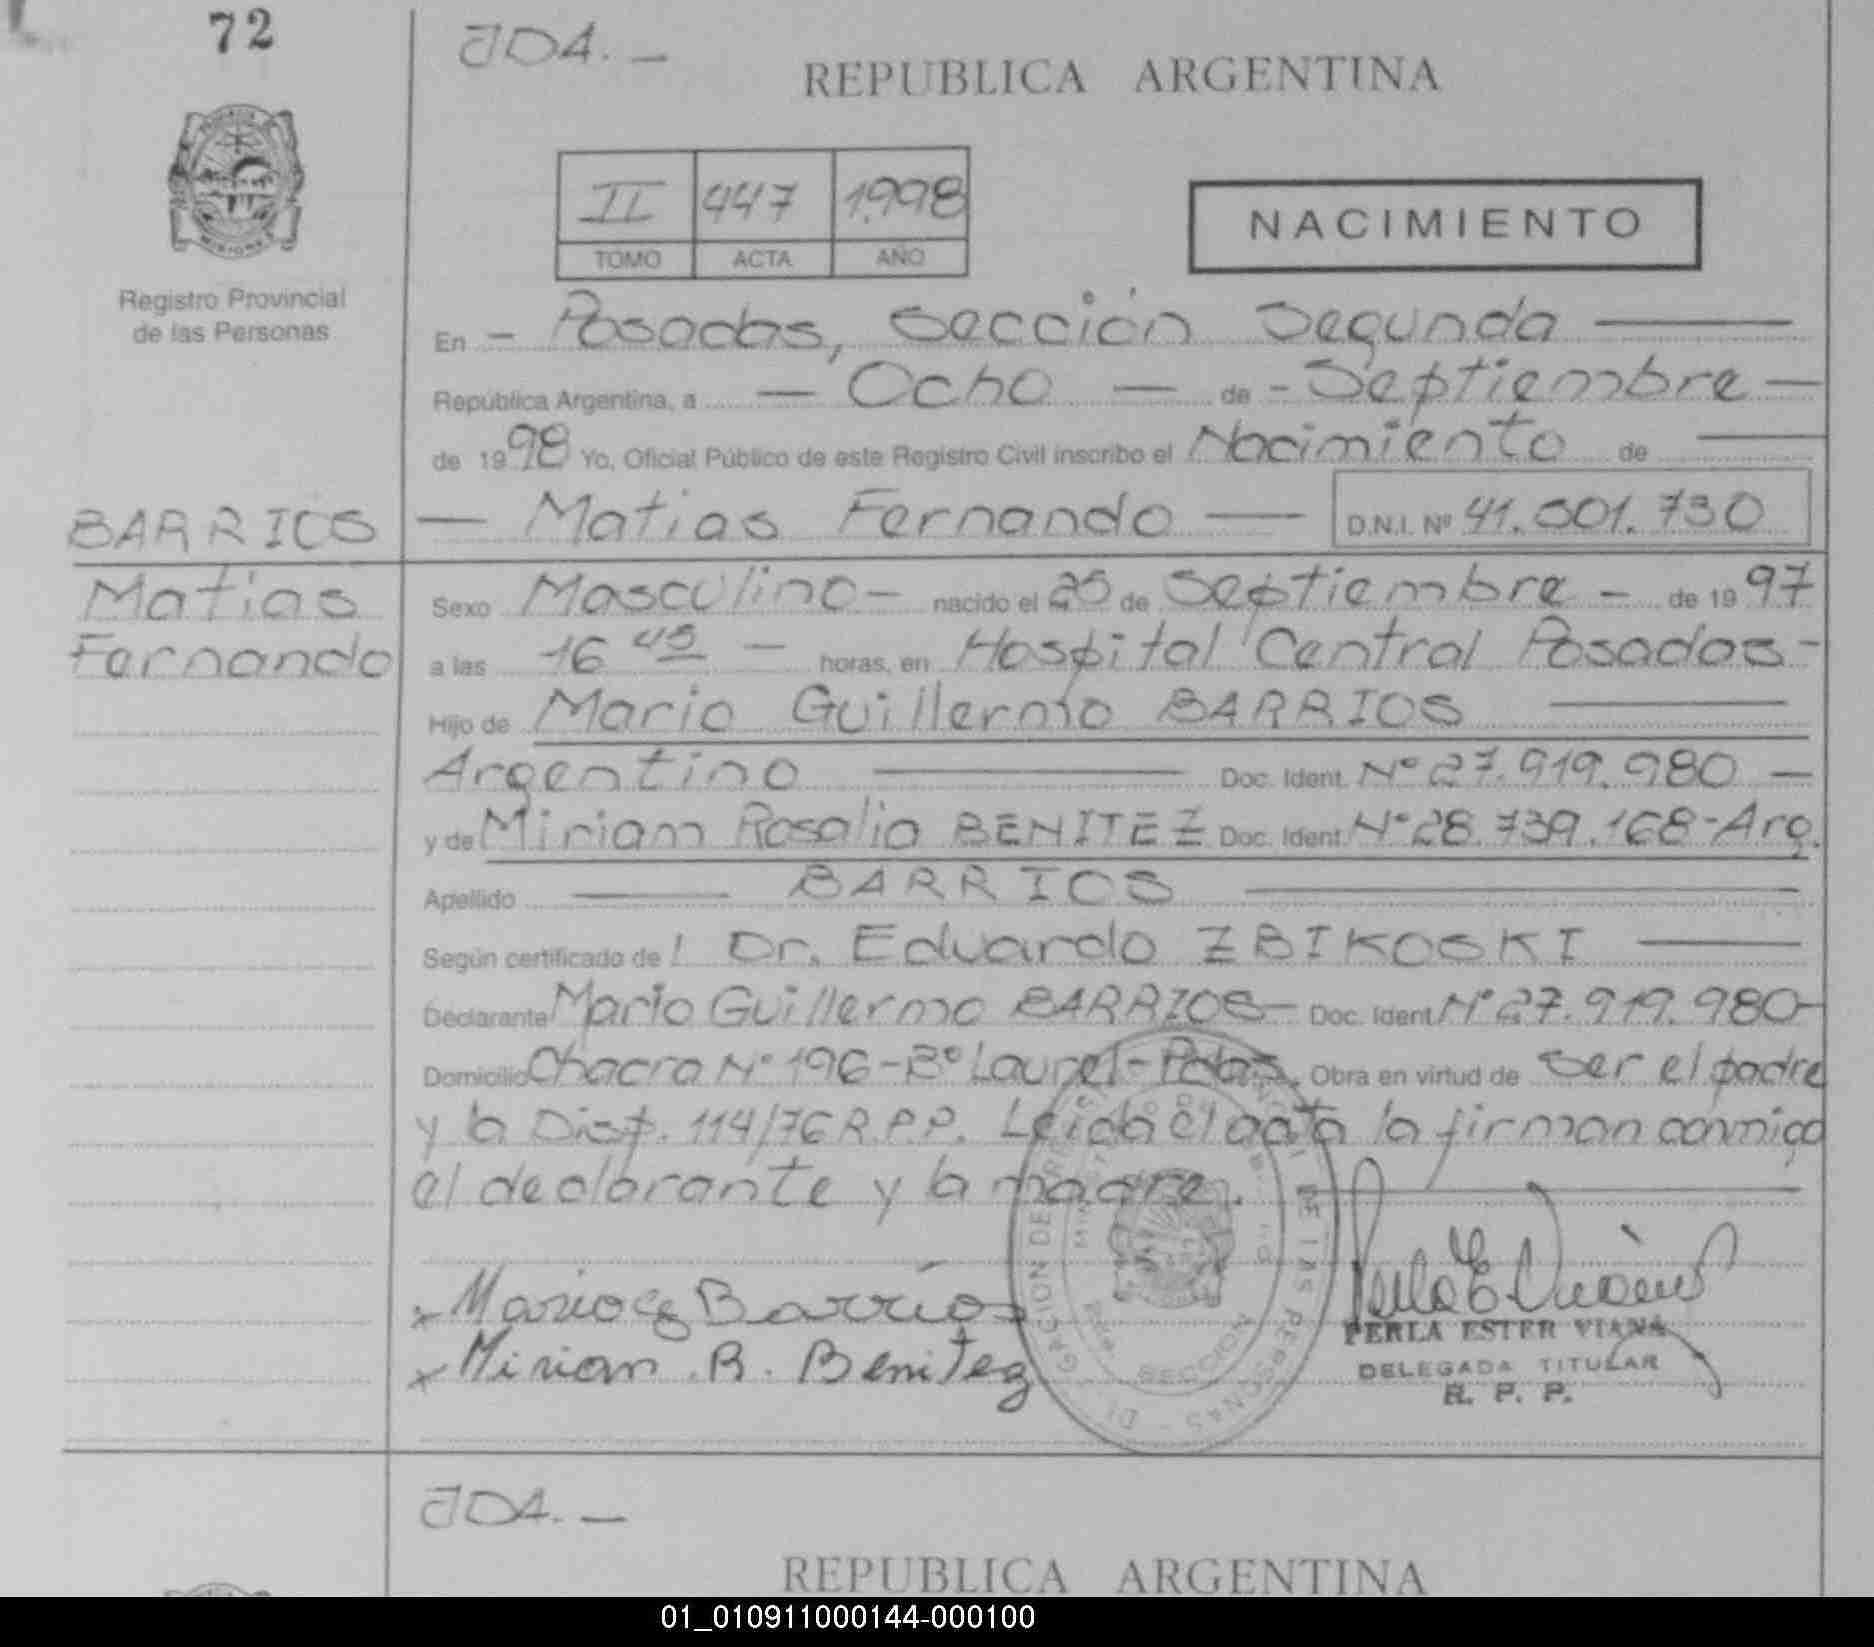 72
JDA. —
REPUBLICA ARGENTINA
II 447 1998
TOMO ACTA AÑO
NACIMIENTO
Registro Provincial
de las Personas
En — Posadas, Sección Segunda —
República Argentina, a — Ocho — de - Septiembre —
de 1998 Yo, Oficial Público de este Registro Civil inscribo el Nacimiento de —
BARRIOS — Matias Fernando — D.N.I. Nº 41.501.730
Matias
Fernando
Sexo Masculino — nacido el 25 de Septiembre — de 1997
a las 16 45 — horas, en Hospital Central Posadas -
Hijo de Mario Guillermo BARRIOS —
Argentino — Doc. Ident. Nº 27.919.980 —
y de Miriam Rosalia BENITEZ Doc. Ident. Nº 28.739.168-Arg.
Apellido — BARRIOS —
Según certificado de l Dr. Eduardo ZBIKOSKI —
Declarante Mario Guillermo BARRIOS — Doc. Ident Nº 27.919.980-
Domicilio Chacra Nº 196-Bº Laurel-Pdas. Obra en virtud de ser el padre
y la Disp. 114/76 R.P.P. Leida el acta la firman conmigo
el declarante y la madre. —
x Mario G Barrios
x Mirian . R . Benitez
PERLA ESTER VIANA
DELEGADA TITULAR
R. P. P.
JDA. —
REPUBLICA ARGENTINA
01_010911000144-000100